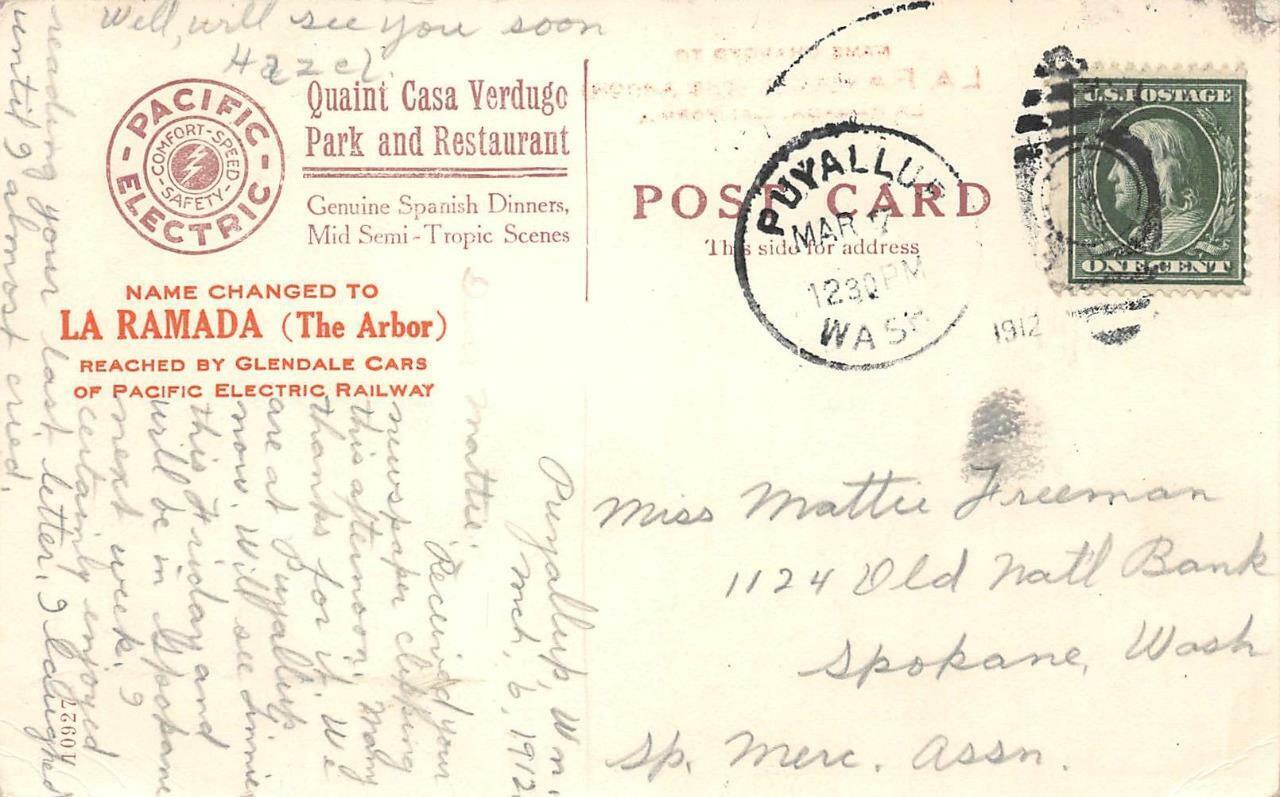 PACIFIC ELECTRIC
COMFORT-SPEED
-SAFETY-
Quaint Casa Verdugo
Park and Restaurant
Genuine Spanish Dinners,
Mid Semi-Tropic Scenes
NAME CHANGED TO
LA RAMADA (The Arbor)
REACHED BY GLENDALE CARS
OF PACIFIC ELECTRIC RAILWAY
POST CARD
This side for address
PUYALLUP
MAR 7
1230 PM
WASH
1912
U.S. POSTAGE
ONE CENT
Miss Mattie Freeman
1124 Old Nat'l Bank
Spokane, Wash
Sp. Merc. Assn.
Puyallup, Wn.
Mch, 6, 1912
Dear Mattie:
Received your
newspaper clipping
this afternoon. Many
thanks for it. We
are at Puyallup
now. Will see
this Friday and
will be in Spokane
next week. I
certainly enjoyed
reading your last letter. I laughed
until I almost cried.
Well, will see you soon
Hazel.
10927
NAME CHANGED TO